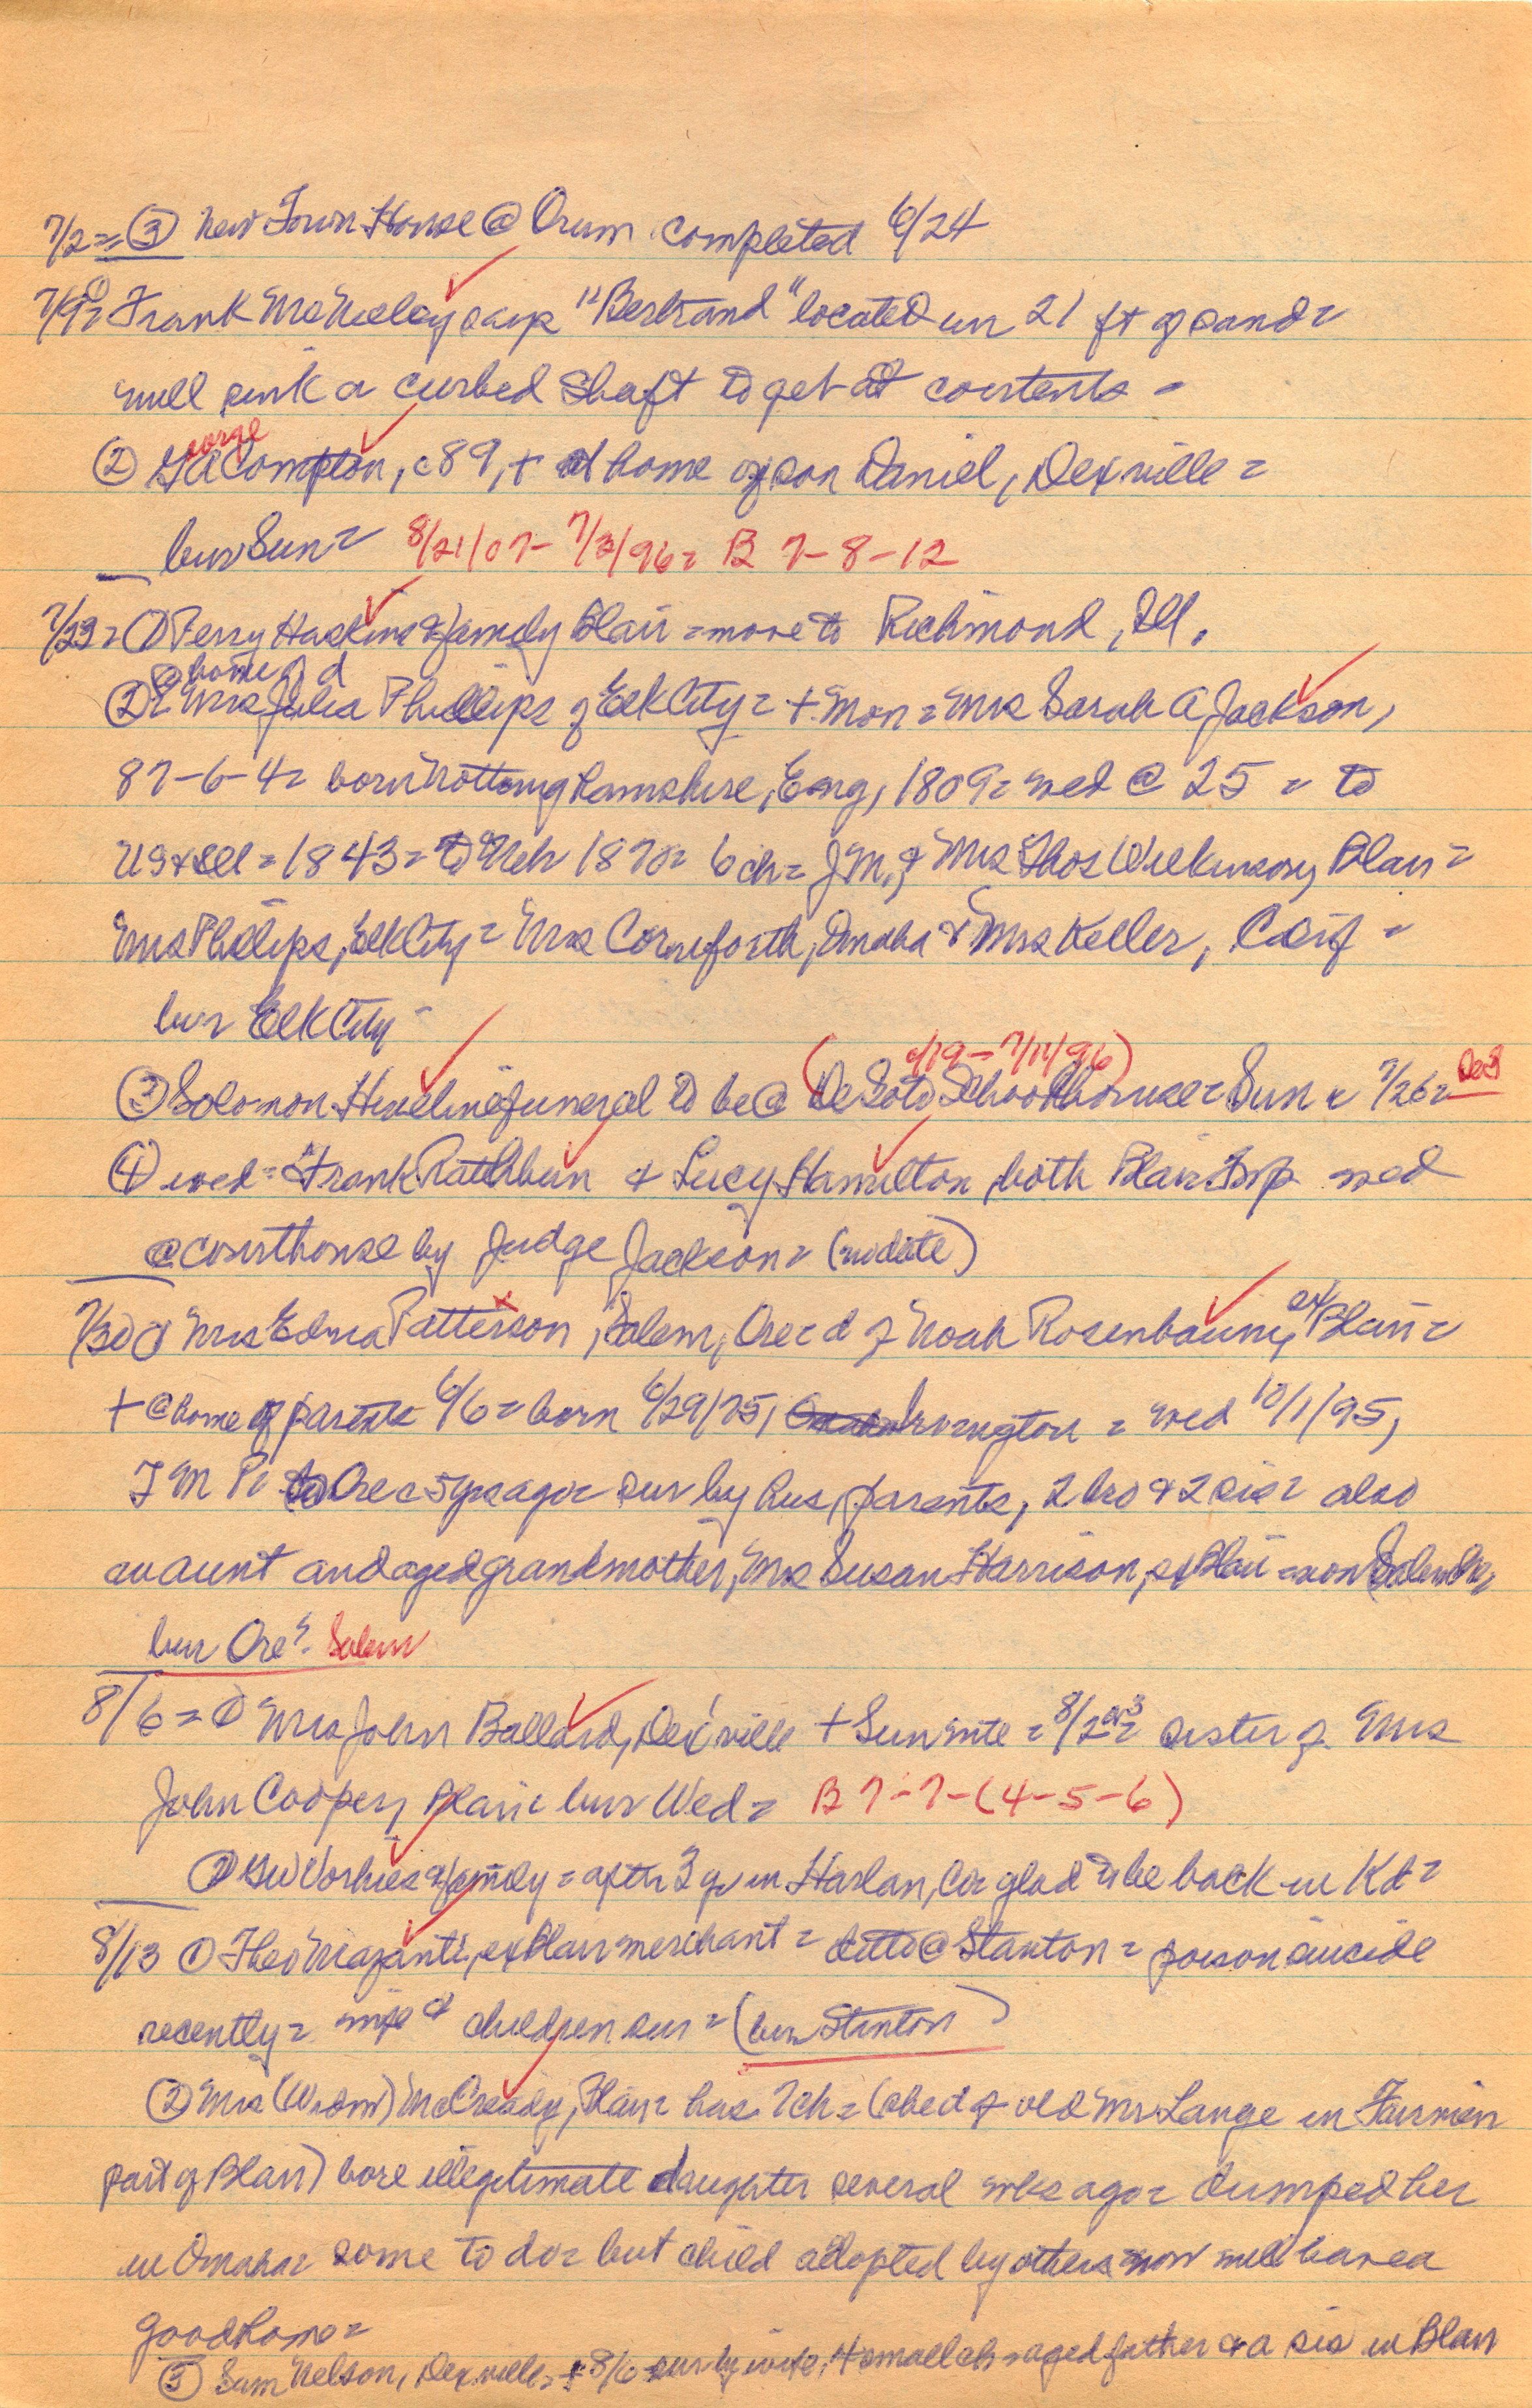 7/2 = ③ New Town House @ Orum completed 6/24
7/9 = ① Frank McNeeley says "Bertrand" located in 21 ft of sand =
will sink a curbed shaft to get at contents =
② Geo Compton, c 89, + at home of son Daniel, Dexville =
George
bur Sun = 8/21/07 - 7/3/96 = B 7-8-12
7/23 = ① Perry Haskins & family Blair = move to Richmond, Ill.
@ home of d
② Mrs Julia Phillips of Elk City = + Mon = Mrs Sarah A Jackson,
87-6-4 = born Nottinghamshire, Eng, 1809 = wed @ 25 = to
US & Ill = 1843 = to Neb 1870 = 6 ch = J M, & Mrs Thos Wilkinson, Blair =
Mrs Phillips, Elk City = Mrs Cornforth, Omaha & Mrs Keller, Calif =
bur Elk City =
( /19 - 7/11/96)
③ Solomon Hineline funeral to be @ De Soto Schoolhouse = Sun = 7/26 = DeS
④ wed = Frank Rathbun & Lucy Hamilton both Blair Twp wed
@ courthouse by Judge Jackson = (no date)
7/30 ① Mrs Edna Patterson, Salem, Ore = d of Noah Rosenbaum, ex Blair =
+ @ home of parents 6/6 = born 6/29/75, Irvington = wed 10/1/95,
J M P = to Ore c 5 yrs ago = sur by hus, parents, 2 bro & 2 sis = also
an aunt and aged grandmother, Mrs Susan Harrison, ex Blair = now Salem Ore
bur Ore? Salem
8/6 = ① Mrs John Ballard, Dexville + Sun nite = 8/2 or 3 = sister of Mrs
John Cooper, Blair = bur Wed = B 7-7-(4-5-6)
② GW Vorhies & family = after 3 y in Harlan, Co = glad to be back in Kd =
8/13 ① Theo Mazanti, ex Blair merchant = ditto @ Stanton = poison suicide
recently = wife & children sur = (bur Stanton)
② Mrs (Widow) McCready, Blair = has 7 ch = (she d of old Mr Lange in Fairview
part of Blair) bore illegitimate daughter several wks ago = dumped her
in Omaha = some to do = but child adopted by others now will have a
good home =
③ Sam Nelson, Dexville = + 8/6 sur by wife, 4 small ch = aged father & a sis in Blair